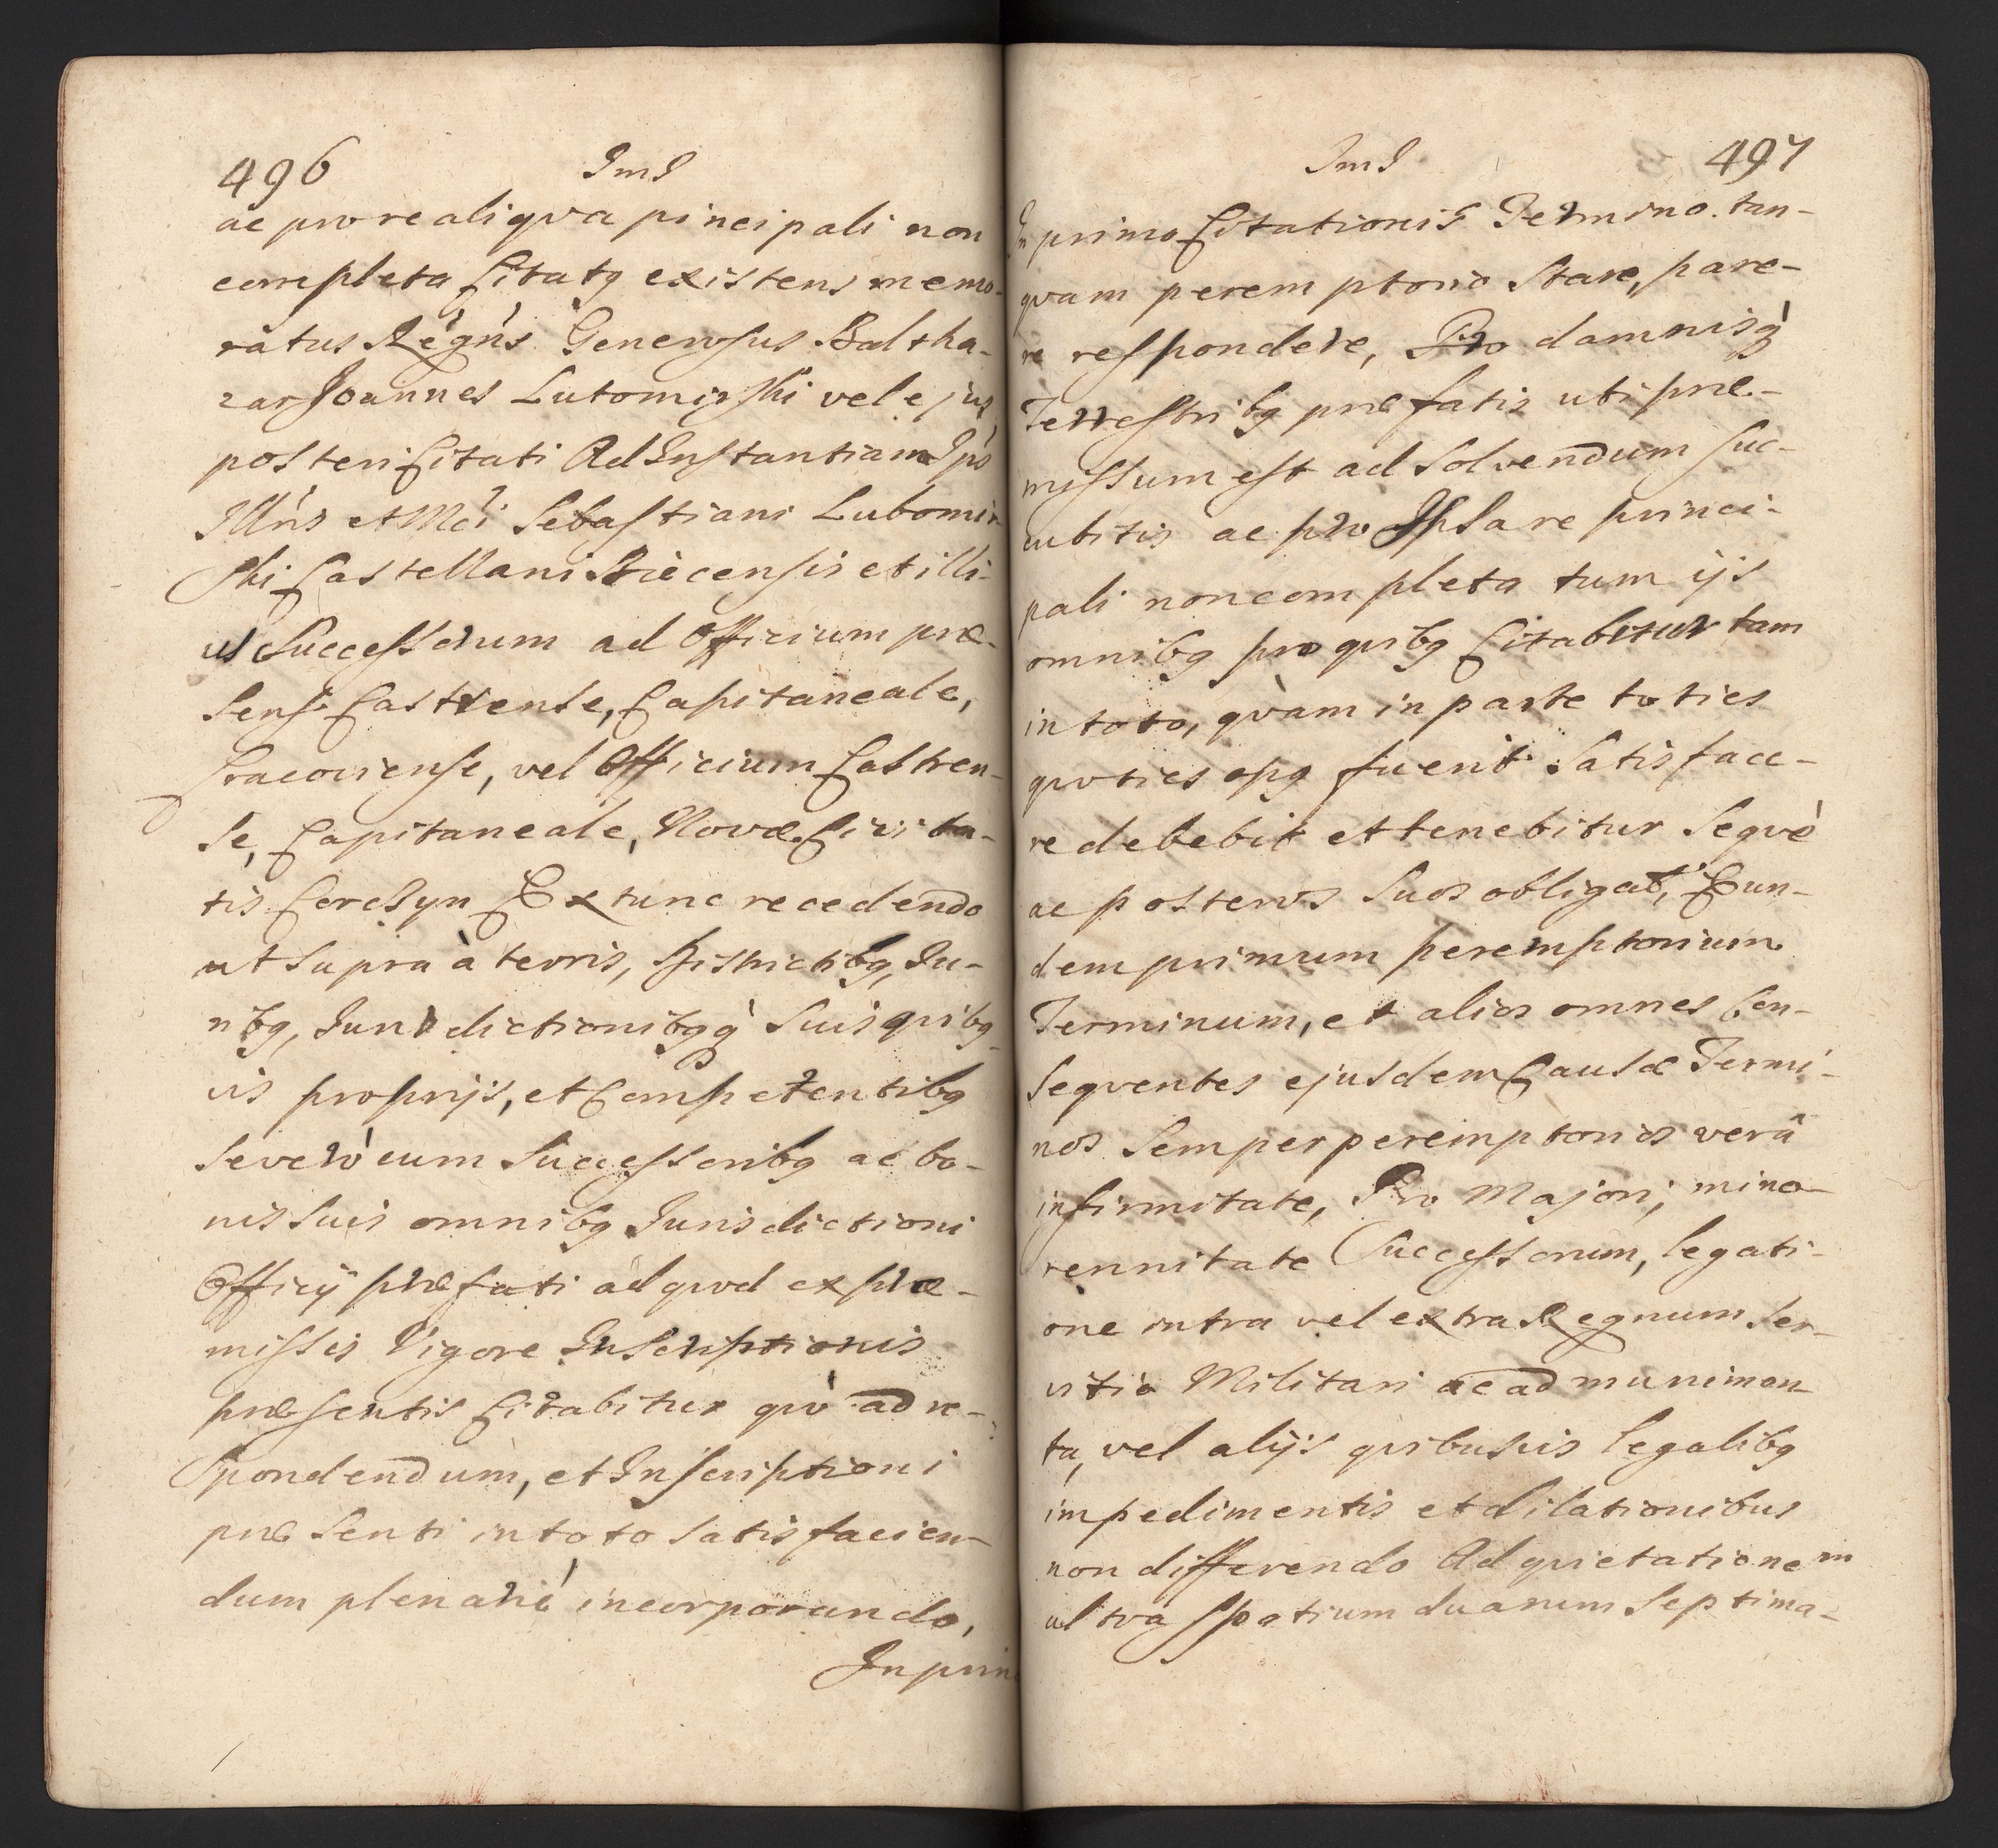 496 JmJ
ac pro re aliqva pincipali non
completa Citatq existens memo-
ratus Rēgńs Generosus Baltha-
zar Joannes Lutomirski vel ejus
posteri Citati Ad Instantiam Ips
Illńs et Mći Sebastiani Lubomir
ski Castellani Biecensis et illi-
us Successorum ad Officium præ-
sens Castrense, Capitaneale,
Cracoviense, vel Officium Castren-
se, Capitaneale, Novæ Civita-
tis Corcsyn Extunc recedendo
ut supra à terris, Districtibq, Ju-
ribq, Jurisdictionibqq̀ suis qvibq-
vis proprijs, et Competentibq
severò cum Successoribq ac bo-
nis suis omnibq Jurisdictioni
Officij præfati ad qvod ex præ-
missis Vigore Inscriptionis
præsentis Citabitur qvò ad re-
spondendum, et Inscriptioni
præsenti in toto satisfacien-
dum plenariè incorporando,
In prim
JmJ 497
In primo Citationis Termino tan-
qvam peremptorio stare, pare-
re respondere, Pro damnisq̀
Terrestribq præfatis uti præ-
missum est ad solvendum suc-
cubitis ac pro Ipsa re princi-
pali non completa tum ijs
omnibq pro qvibq Citabitur tam
in toto, qvàm in parte toties
qvoties opq fuerit satisface-
re debebit et tenebitur seqvè
ac posteros suos obligat, Eun-
dem primum peremptorium
Terminum, et alios omnes con-
seqventes ejusdem Causæ Termi-
nos semper peremptorios verâ
infirmitate, Pro Majori, mino-
rennitate Successorum, legati-
one intra vel extra Regnum ser-
vitio Militari ac ad munimen-
ta, vel alijs qvibusvis legalibq
impedimentis et dilationibus
non differendo Ad qvietationem
ultra spatium duarum septima-